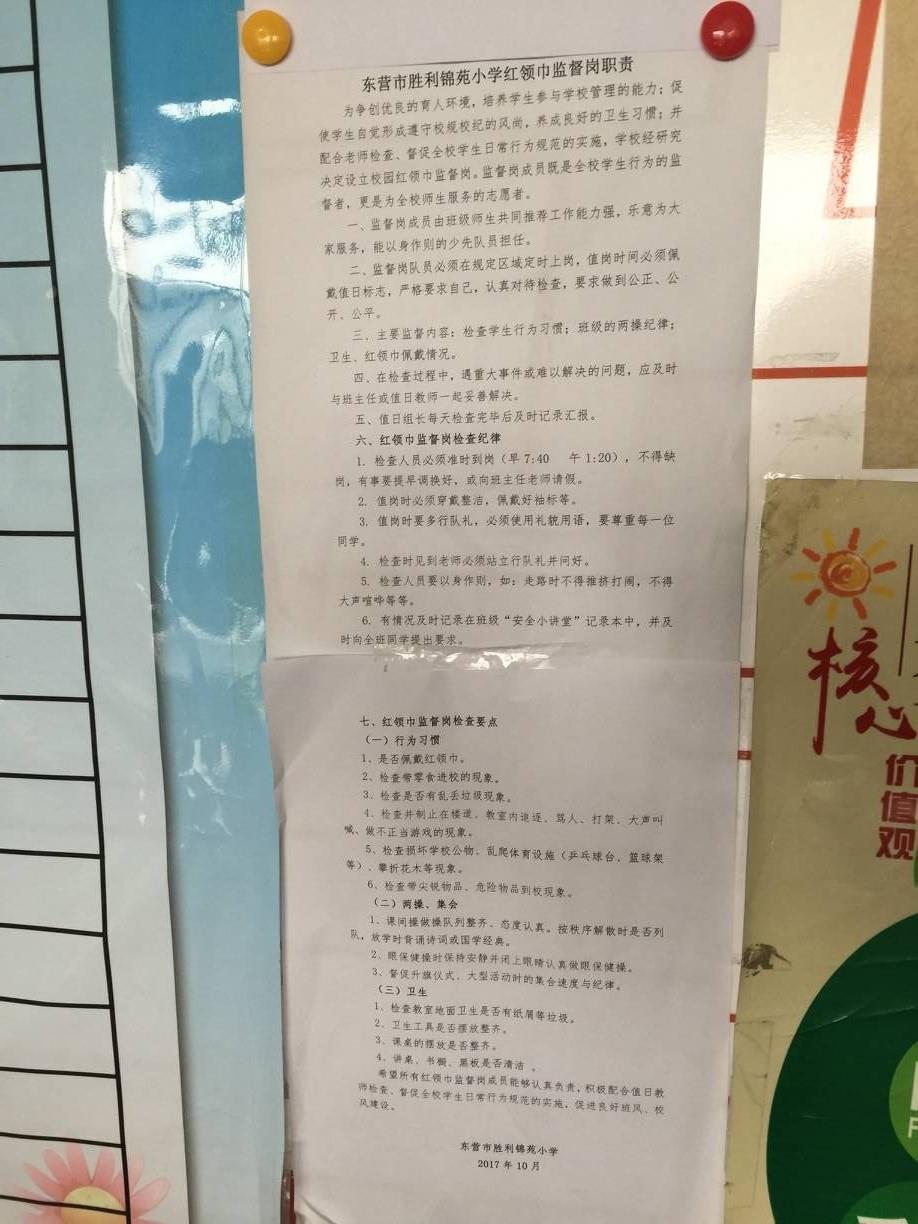 东营市胜利锦苑小学红领巾监督岗职责
为争创优良的育人环境，培养学生参与学校管理的能力；促
使学生自觉形成遵守校规校纪的风尚，养成良好的卫生习惯；并
配合老师检查、督促全校学生日常行为规范的实施，学校经研究
决定设立校园红领巾监督岗。监督岗成员既是全校学生行为的监
督者，更是为全校师生服务的志愿者。
一、监督岗成员由班级师生共同推荐工作能力强，乐意为大
家服务，能以身作则的少先队员担任。
二、监督岗队员必须在规定区域定时上岗，值岗时间必须佩
戴值日标志，严格要求自己，认真对待检查，要求做到公正、公
开、公平。
三、主要监督内容：检查学生行为习惯；班级的两操纪律；
卫生、红领巾佩戴情况。
四、在检查过程中，遇重大事件或难以解决的问题，应及时
与班主任或值日教师一起妥善解决。
五、值日组长每天检查完毕后及时记录汇报。
六、红领巾监督岗检查纪律
1. 检查人员必须准时到岗（早 7:40 午 1:20），不得缺
岗，有事要提早调换好，或向班主任老师请假。
2. 值岗时必须穿戴整洁，佩戴好袖标等。
3. 值岗时要多行队礼，必须使用礼貌用语，要尊重每一位
同学。
4. 检查时见到老师必须站立行队礼并问好。
5. 检查人员要以身作则，如：走路时不得推挤打闹，不得
大声喧哗等等。
6. 有情况及时记录在班级“安全小讲堂”记录本中，并及
时向全班同学提出要求。
七、红领巾监督岗检查要点
（一）行为习惯
1、是否佩戴红领巾。
2、检查带零食进校的现象。
3、检查是否有乱丢垃圾现象。
4、检查并制止在楼道、教室内追逐、骂人、打架、大声叫
喊、做不正当游戏的现象。
5、检查损坏学校公物、乱爬体育设施（乒乓球台、篮球架
等）、攀折花木等现象。
6、检查带尖锐物品、危险物品到校现象。
（二）两操、集会
1、课间操做操队列整齐、态度认真。按秩序解散时是否列
队，放学时背诵诗词或国学经典。
2、眼保健操时保持安静并闭上眼睛认真做眼保健操。
3、督促升旗仪式、大型活动时的集合速度与纪律。
（三）卫生
1、检查教室地面卫生是否有纸屑等垃圾。
2、卫生工具是否摆放整齐。
3、课桌的摆放是否整齐。
4、讲桌、书橱、黑板是否清洁 。
希望所有红领巾监督岗成员能够认真负责，积极配合值日教
师检查、督促全校学生日常行为规范的实施，促进良好班风、校
风建设。
东营市胜利锦苑小学
2017 年 10 月
核
心
价
值
观